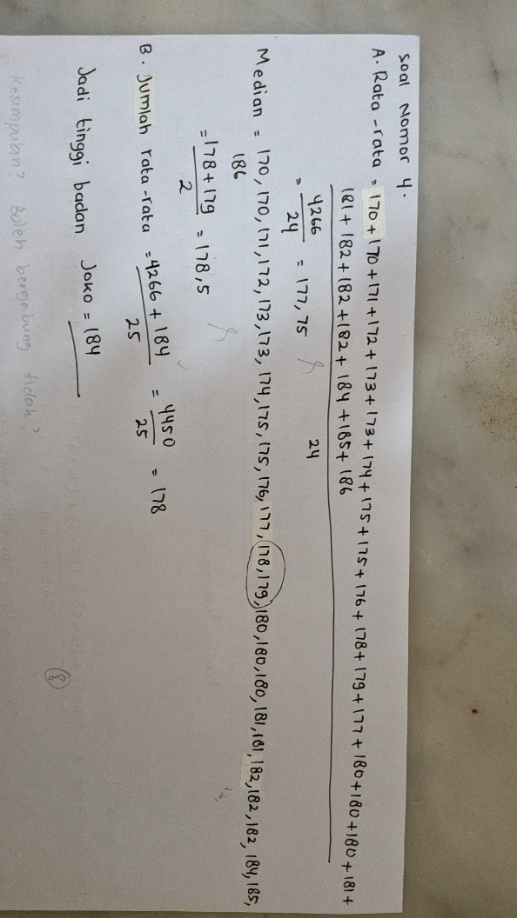 Soal Nomor 4.
A. Rata-rata = 170+170+171+172+173+173+174+175+175+176+178+179+177+180+180+180+181+
181+182+182+182+184+185+186
24
= 4266/24 = 177,75
Median = 170,170,171,172,173,173,174,175,175,176,177,178,179,180,180,180,181,181,182,182,182,184,185,
186
= 178+179/2 = 178,5
B. Jumlah rata-rata = 4266+184/25 = 4450/25 = 178
Jadi tinggi badan Joko = 184
Kesimpulan? Boleh bergabung tidak?
8